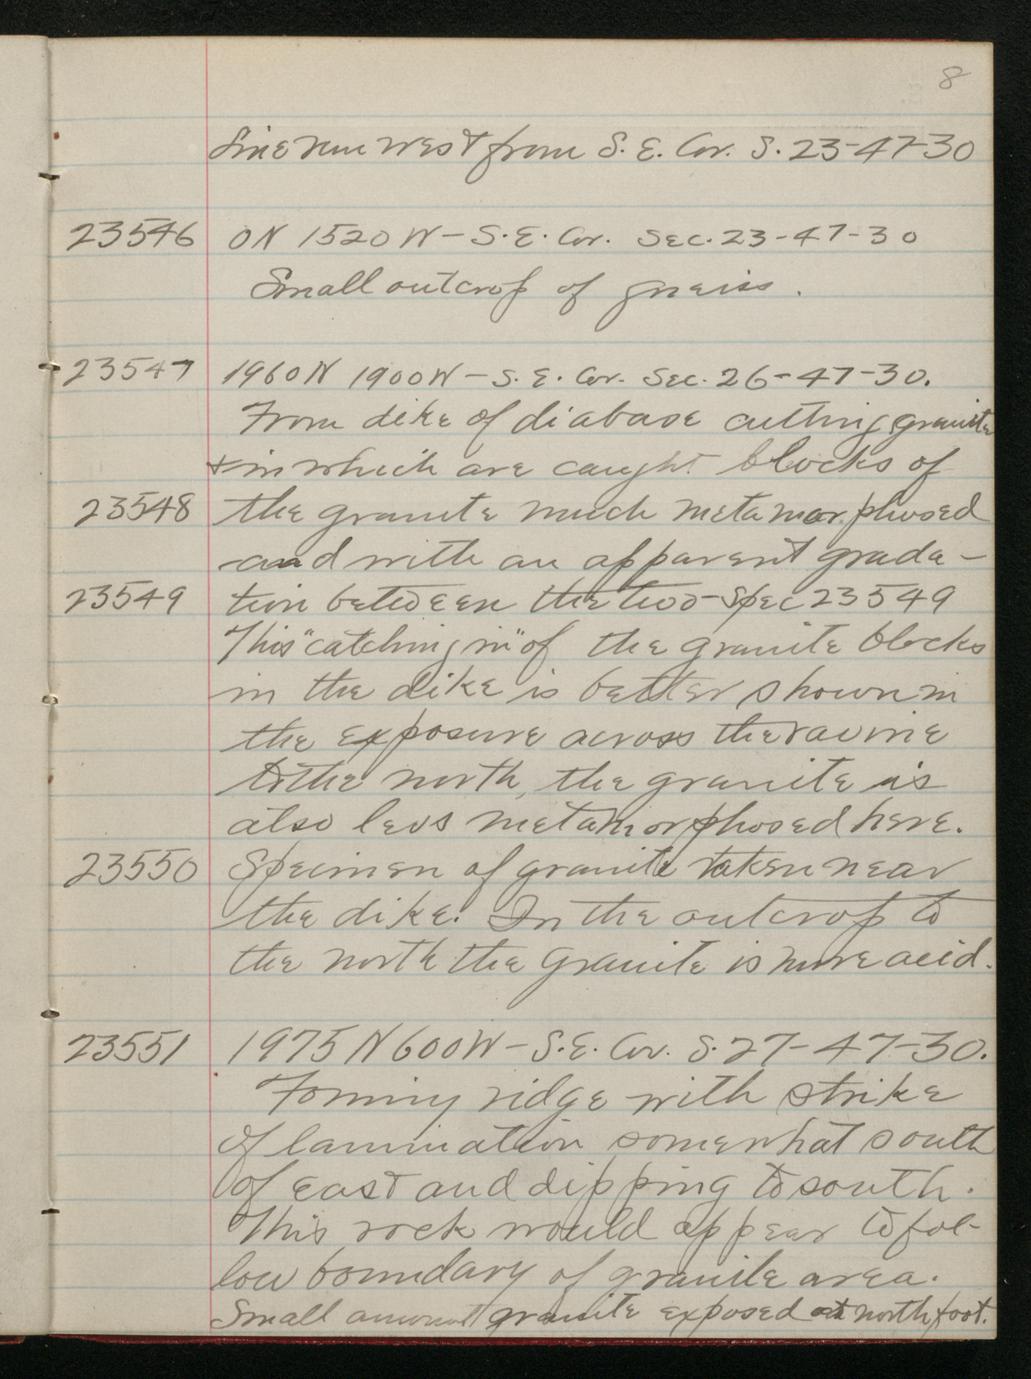 8
Line run west from S. E. Cor. S. 23-47-30
23546 0N 1520W - S.E. Cor. Sec. 23-47-30
Small outcrop of gneiss.
23547 1960N 1900W - S. E. Cor. Sec. 26-47-30.
From dike of diabase cutting granite
& in which are caught blocks of
23548 the granite much metamorphosed
and with an apparent grada-
23549 tion between the two - Spec 23549
This "catching in" of the granite blocks
in the dike is better shown in
the exposure across the ravine
to the north, the granite is
also less metamorphosed here.
23550 Specimen of granite taken near
the dike. In the outcrop to
the north the granite is more acid.
23551 1975N 600W - S.E. Cor. S. 27-47-30.
Forming ridge with strike
of lamination somewhat south
of east and dipping to south.
This rock would appear to fol-
low boundary of granite area.
Small amount granite exposed at north foot.